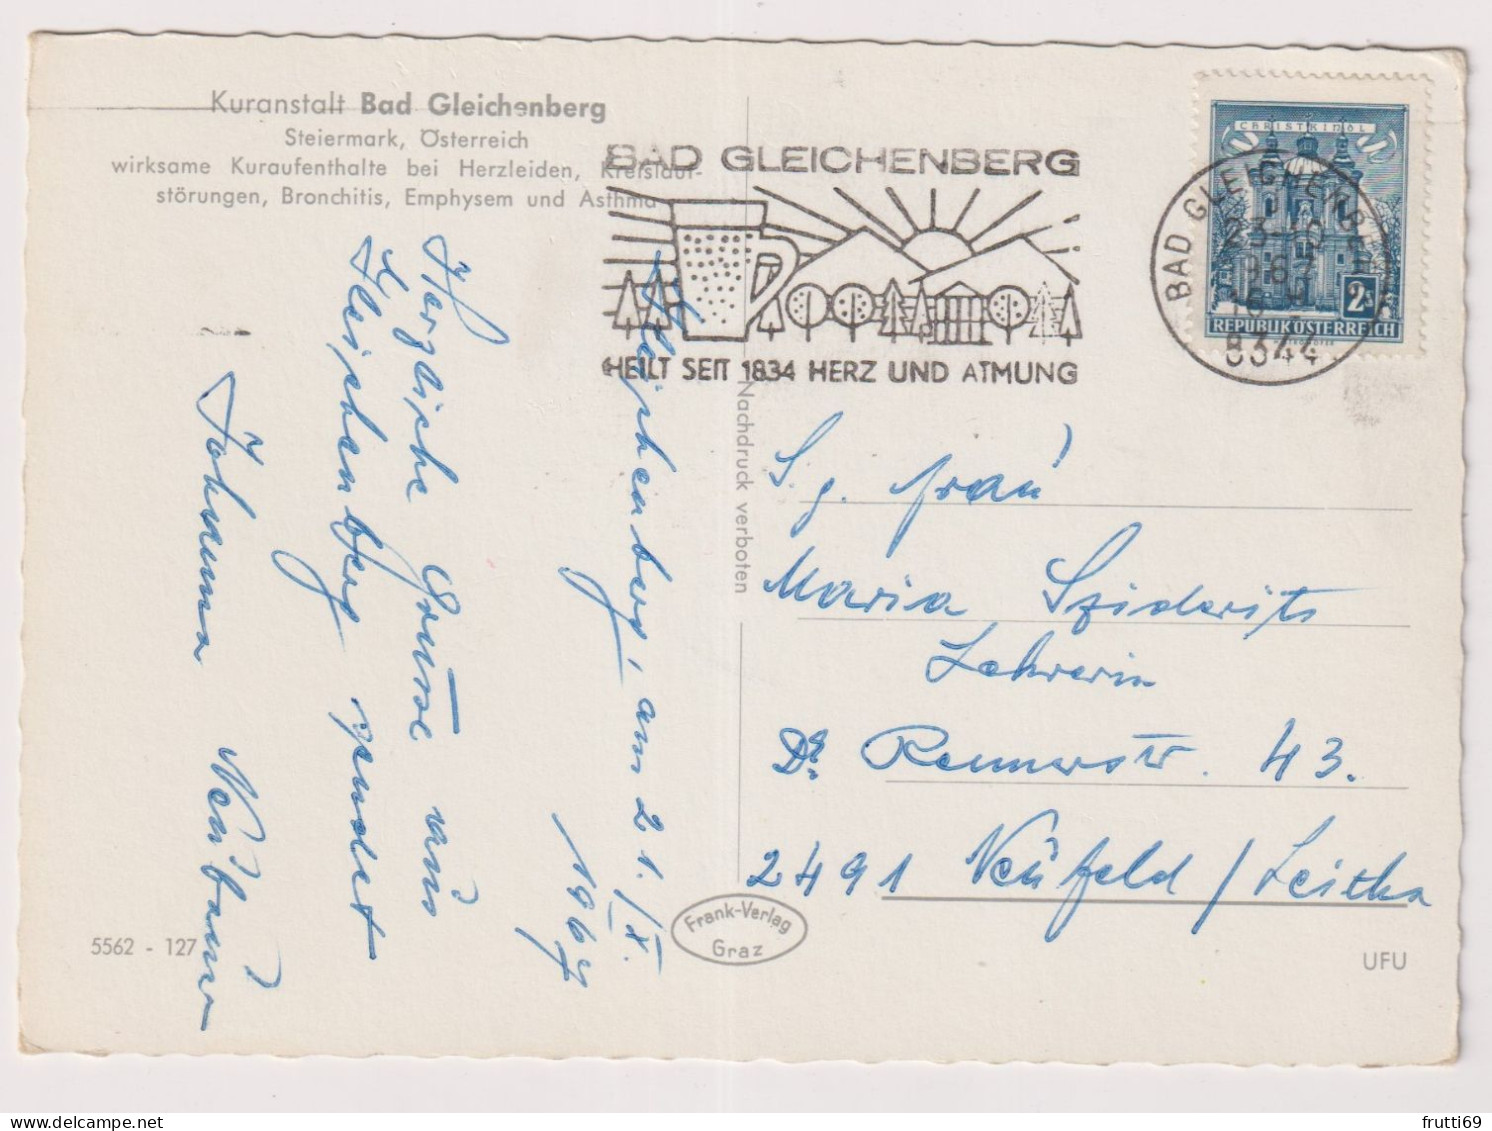 Kuranstalt Bad Gleichenberg
Steiermark, Österreich
wirksame Kuraufenthalte bei Herzleiden, Kreislauf-
störungen, Bronchitis, Emphysem und Asthma
BAD GLEICHENBERG
HEILT SEIT 1834 HERZ UND ATMUNG
CHRISTKINDL
2S
REPUBLIK ÖSTERREICH
BAD GLEICHENBERG
8344
Gleichenberg, am 21./IX.
1967
Herzliche Grüsse aus
Gleichenberg sendet
Johanna Neubauer
Nachdruck verboten
S. g. Frau
Maria Sziderits
Lehrerin
Dr. Rennerstr. 43.
2491 Neufeld / Leitha
5562 - 127
Frank-Verlag
Graz
UFU
frutti69